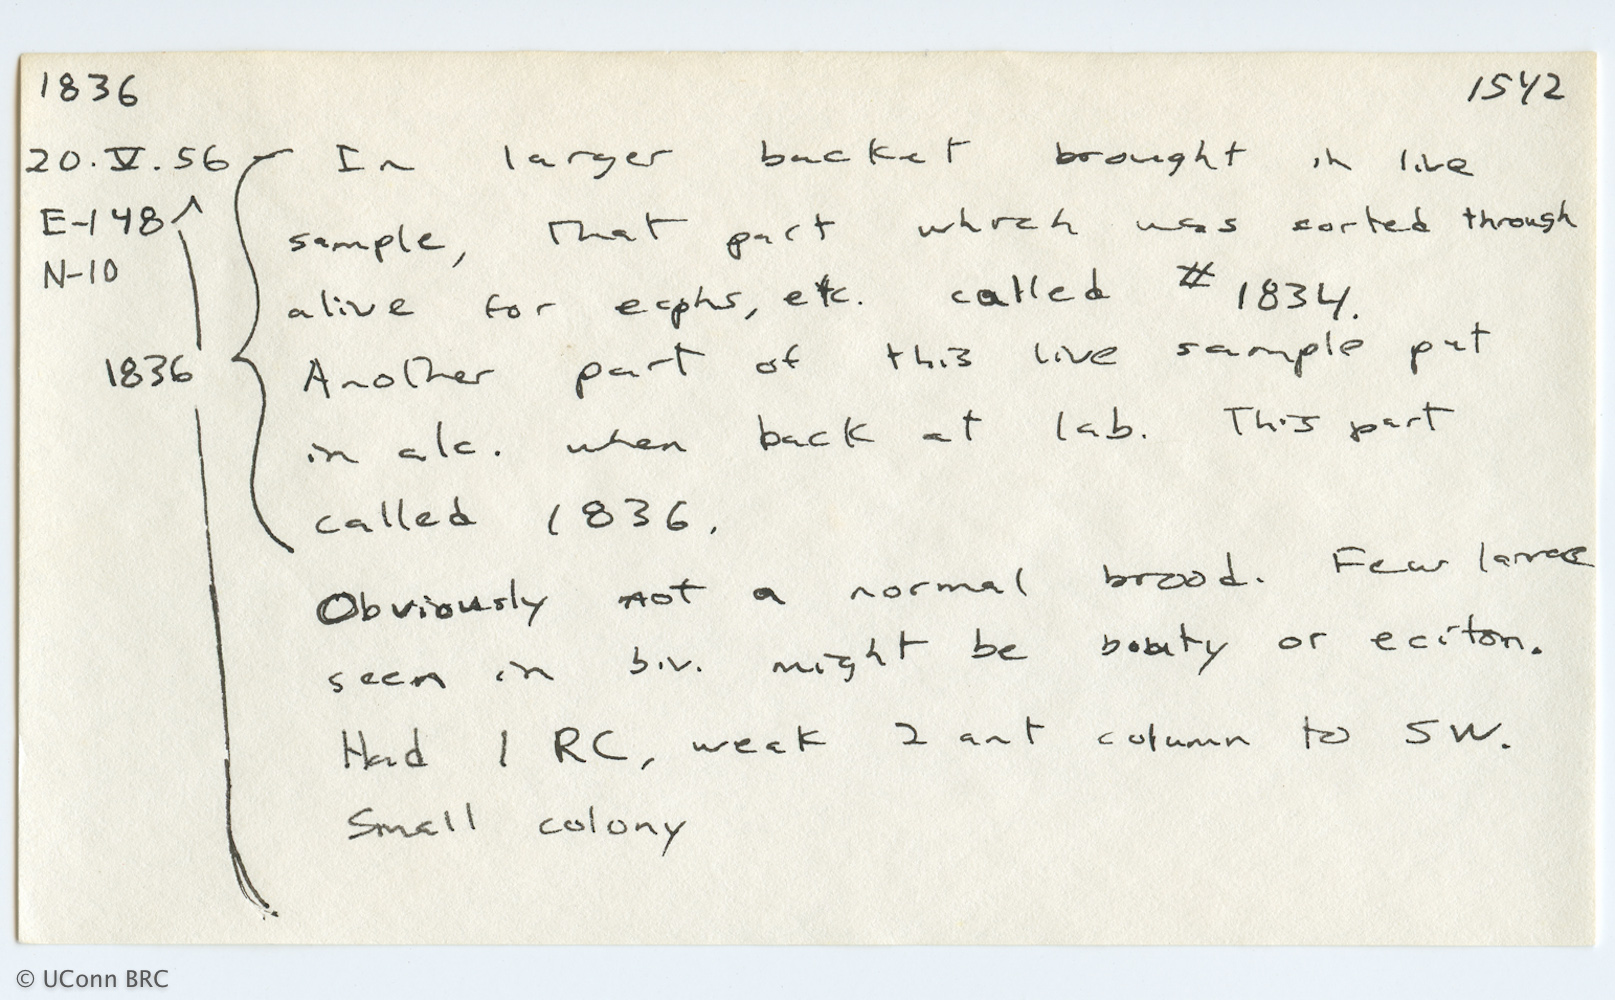 1836 1542
20.V.56 In larger bucket brought in live
E-148 sample, that part which was sorted through
N-10 alive for ecphs, etc. called # 1834.
1836 Another part of this live sample put
in alc. when back at lab. This part
called 1836.
Obviously not a normal brood. Few larvae
seen in biv. might be booty or eciton.
Had 1 RC, weak 2 ant column to SW.
Small colony
© UConn BRC